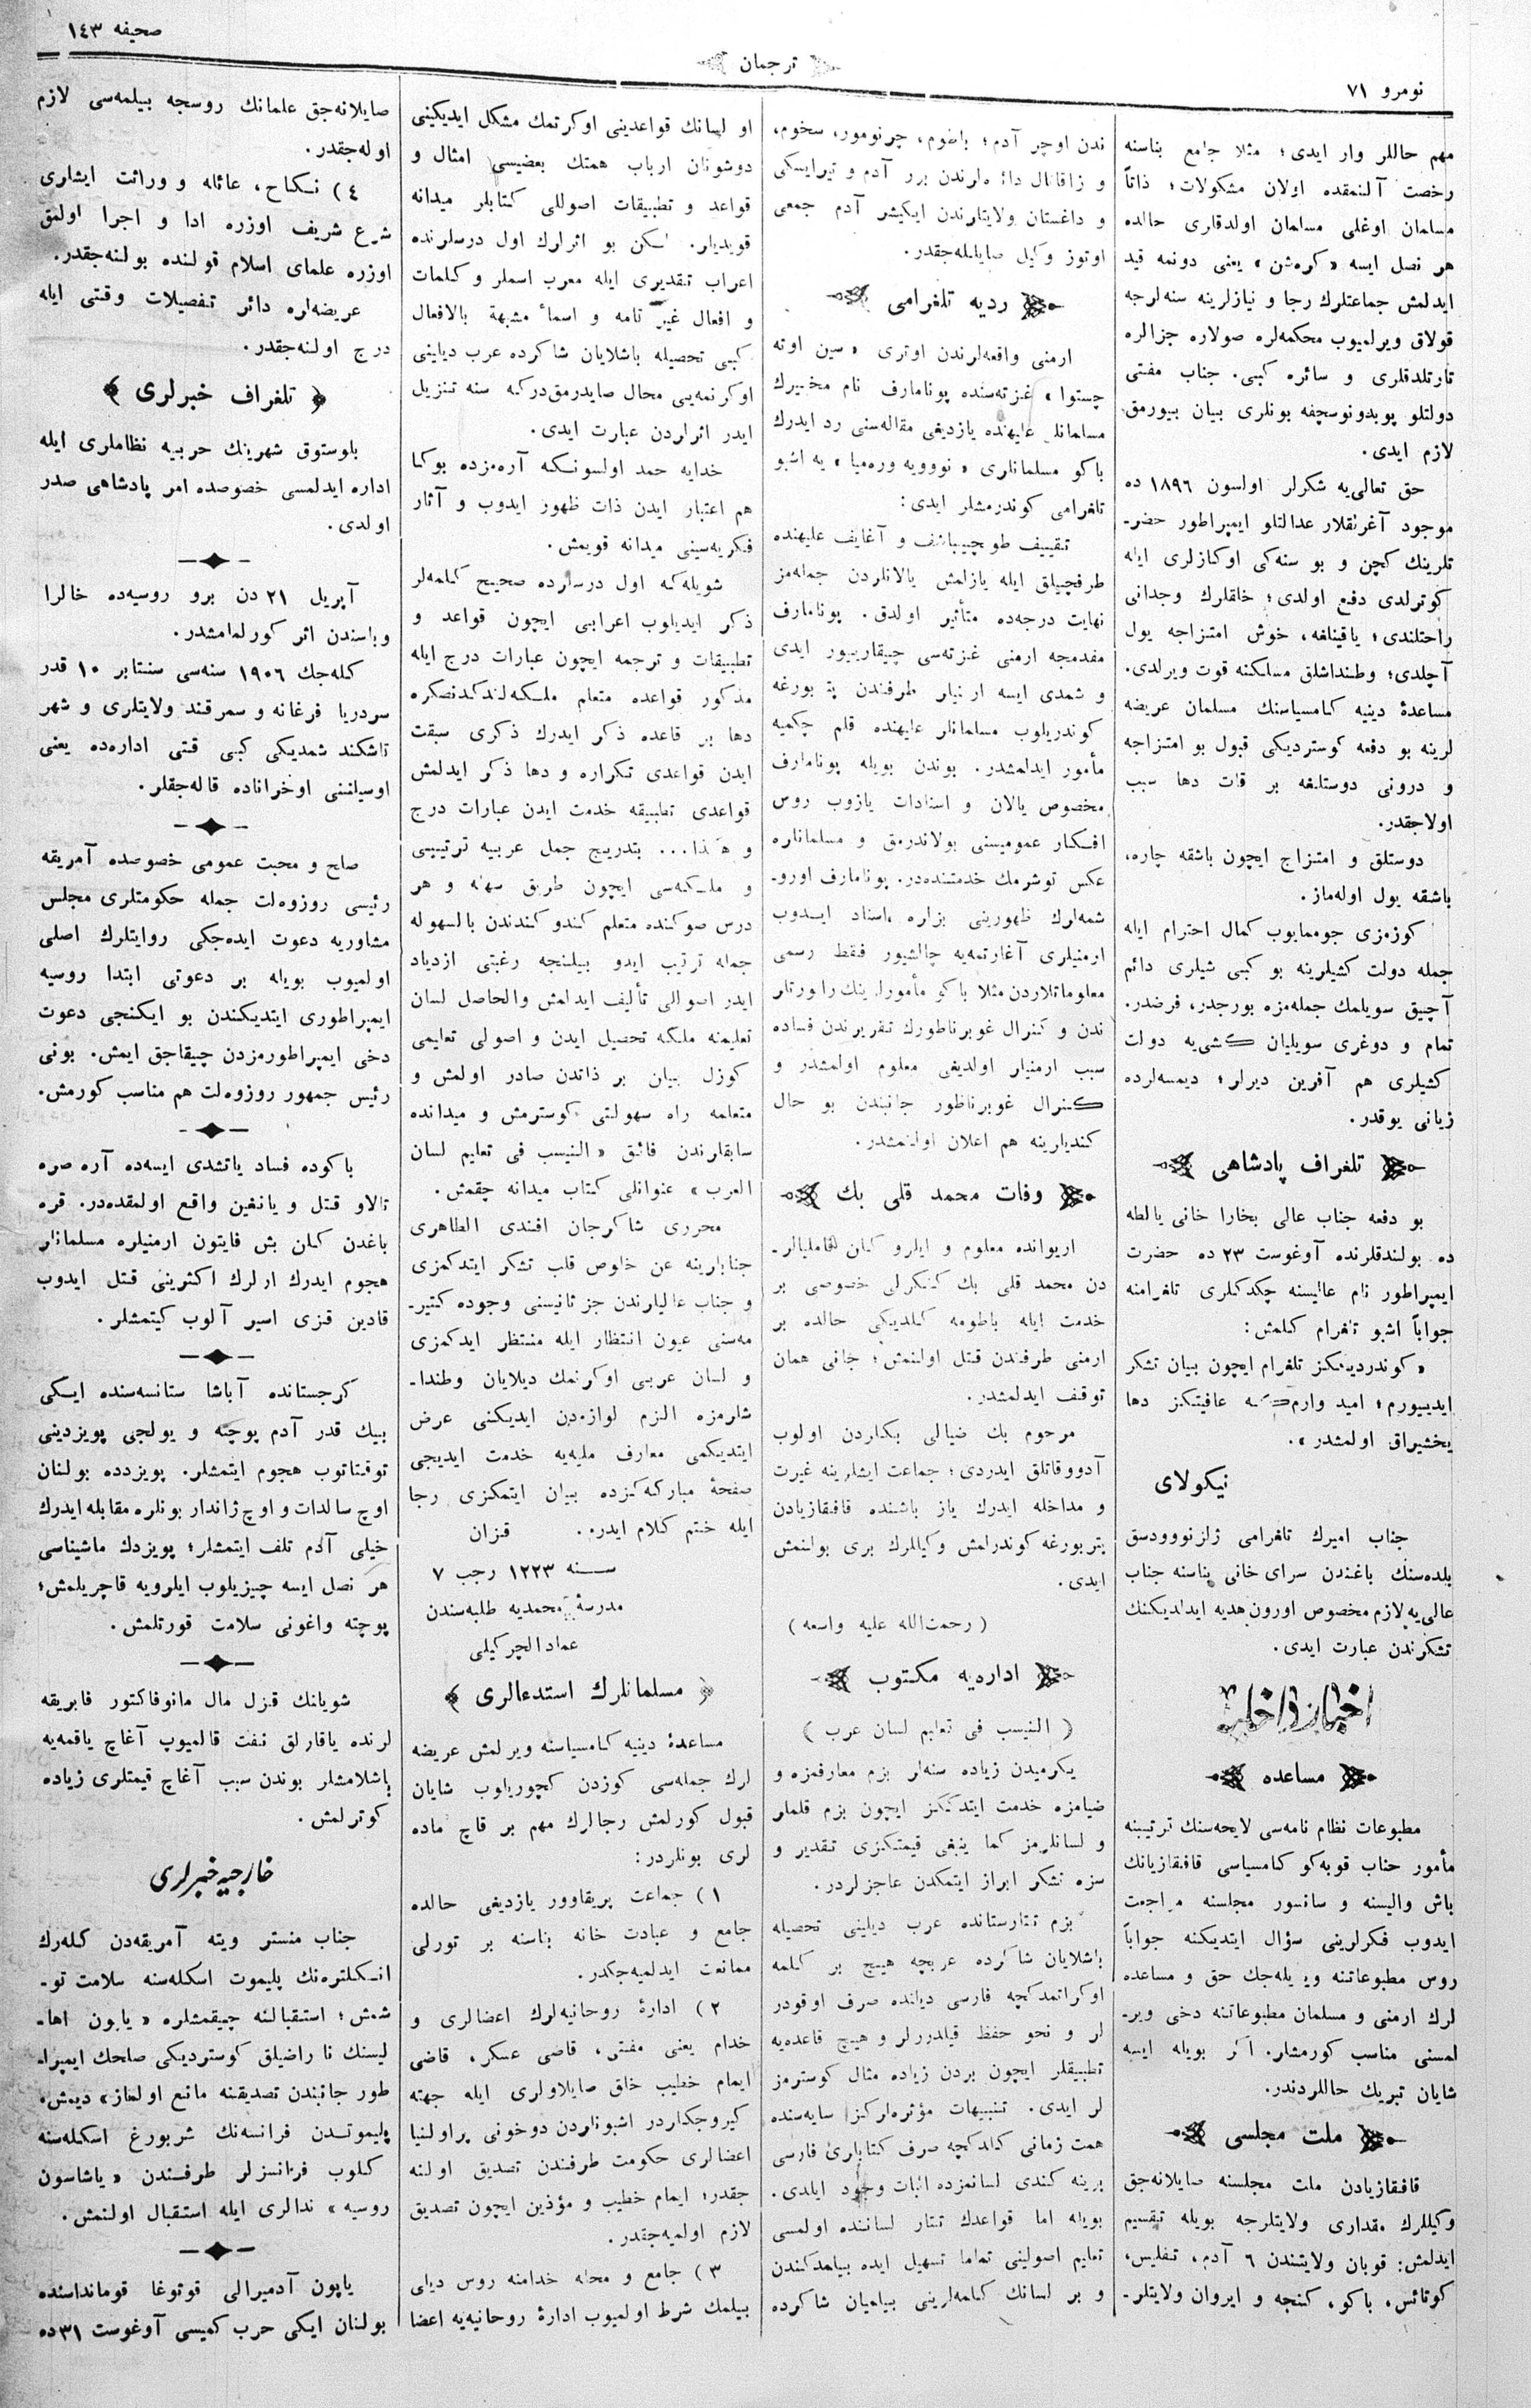 نومرو ٧١
ترجمان
صحیفه ١٤٣
مهم حاللر وار ایدی؛ مثلا جامع بناسنه
رخصت آلنمقده اولان مشکولات؛ ذاتاً
مسلمان اوغلی مسلمان اولدقلری حالده
هر نصل ایسه «کره‌شن» یعنی دونمه قید
ایدلمش جماعتلرك رجا و نیازلرینه سنه‌لرجه
قولاق ویرلمیوب محکمه‌لره صولاره جزالره
تارتلدقلری و سائره کبی. جناب مفتی
دولتلو پوبدونوسچفه بونلری بیان بیورمق
لازم ایدی.
حق تعالی‌یه شکرلر اولسون ١٨٩٦ ده
موجود آغرلقلار عدالتلو ایمپراطور حضر-
تلرینك کچن و بو سنه‌کی اوکازلری ایله
کوترلدی دفع اولدی؛ خلقلرك وجدانی
راحتلندی؛ یاقینلغه، خوش امتزاجه یول
آچلدی؛ وطنداشلق مسلکنه قوت ویرلدی.
مساعدهٔ دینیه کامسیاسنك مسلمان عریضه
لرینه بو دفعه کوستردیکی قبول بو امتزاجه
و درونی دوستلغه بر قات دها سبب
اولاجقدر.
دوستلق و امتزاج ایچون باشقه چاره،
باشقه یول اوله‌ماز.
کوزمزی جوممایوب کمال احترام ایله
جمله دولت کشیلرینه بو کبی شیلری دائم
آچیق سویلمك جمله‌مزه بورجدر، فرضدر.
تمام و دوغری سویلیان کشی‌یه دولت
کشیلری هم آفرین دیرلر؛ دیمسه‌لرده
زیانی یوقدر.
تلغراف پادشاهی
بو دفعه جناب عالی بخارا خانی یالطه
ده بولندقلرنده آوغوست ٢٣ ده حضرت
ایمپراطور نام عالیسنه چکدکلری تلغرامنه
جواباً اشبو تلغرام کلمش:
«کوندردیمکز تلغرام ایچون بیان تشکر
ایدییورم؛ امید وارم که عافیتکز دها
یخشیراق اولمشدر».
نیکولای
جناب امیرك تلغرامی ژلزنووودسق
بلده‌سنك باغندن سرای خانی بناسنه جناب
عالی‌یه لازم مخصوص اورون هدیه ایدلدیکنك
تشکرندن عبارت ایدی.
اخبار داخلیه
مساعده
مطبوعات نظام نامه‌سی لایحه‌سنك ترتیبنه
مأمور جناب قوبه‌کو کامسیاسی قافقازیانك
باش والیسنه و سانسور مجلسنه مراجعت
ایدوب فکرلرینی سؤال ایتدیکنه جواباً
روس مطبوعاتنه ویریله‌جك حق و مساعده
لرك ارمنی و مسلمان مطبوعاتنه دخی ویر-
لمسنی مناسب کورمشلر. اگر بویله ایسه
شایان تبریك حاللردندر.
ملت مجلسی
قافقازیادن ملت مجلسنه صایلانه‌جق
وکیللرك مقداری ولایتلرجه بویله تقسیم
ایدلمش: قوبان ولایتندن ٦ آدم، تفلیس،
کوتائس، باکو، کنجه و ایروان ولایتلر-
ندن اوچر آدم؛ باطوم، چرنومور، سخوم،
و زاقاتال دائره‌لرندن برر آدم و تیرایسکی
و داغستان ولایتلرندن ایکیشر آدم جمعی
اوتوز وکیل صایلمله‌جقدر.
ردیه تلغرامی
ارمنی واقعه‌لرندن اوتری «سین اوته
چستوا» غزته‌سنده پونامارف نام مخبیرك
مسلمانلر علیهنده یازدیغی مقاله‌سنی رد ایدرك
باکو مسلمانلری «نوویه وره‌میا» یه اشبو
تلغرامی کوندرمشلر ایدی:
تقییف طوپچیباشف و آغایف علیهنده
طرفچیلق ایله یازلمش یالانلردن جمله‌مز
نهایت درجه‌ده متأثیر اولدق. پونامارف
مقدمجه ارمنی غزته‌سی چیقارییور ایدی
و شمدی ایسه ارمنیلر طرفندن پتربورغه
کوندریلوب مسلمانلر علیهنده قلم چکمیه
مأمور ایدلمشدر. بوندن بویله پونامارف
مخصوص یالان و اسنادات یازوب روس
افکار عمومیسنی بولاندرمق و مسلمانلره
عکس توشرمك خدمتنده‌در. پونامارف اورو-
شمه‌لرك ظهورینی بزلره اسناد ایدوب
ارمنیلری آغارتمه‌یه چالشیور فقط رسمی
معلوماتلاردن مثلا باکو مأمورلرینك راپورتلر
ندن و گنرال غوبرناطورك تقریرندن فساده
سبب ارمنیلر اولدیغی معلوم اولمشدر و
گنرال غوبرناطور جانبندن بو حال
کندیلرینه هم اعلان اولنمشدر.
وفات محمد قلی بك
اریوانده معلوم و ایلرو کلن فامیلیالر-
دن محمد قلی بك کنکرلی خصوصی بر
خدمت ایله باطومه کلدیکی حالده بر
ارمنی طرفندن قتل اولنمش؛ جانی همان
توقف ایدلمشدر.
مرحوم بك ضیالی بکلردن اولوب
آدووقاتلق ایدردی؛ جماعت ایشلرینه غیرت
و مداخله ایدرك یاز باشنده قافقازیادن
پتربورغه کوندرلمش وکیللرك بری بولنمش
ایدی.
(رحمت‌الله علیه واسعه)
اداره‌یه مکتوب
(النیسب فی تعلیم لسان عرب)
یکرمیدن زیاده سنه‌لر بزم معارفمزه و
ضیامزه خدمت ایتدیکز ایچون بزم قلملر
و لسانلرمز کما ینبغی قیمتکزی تقدیر و
سزه تشکر ابراز ایتمکدن عاجزلردر.
بزم تتارستانده عرب دیلینی تحصیله
باشلایان شاکرده عربچه هیچ بر کلمه
اوکراتمدکچه فارسی دیلنده صرف اوقودر
لر و نحو حفظ قیلدررلر و هیچ قاعده‌یه
تطبیقلر ایچون بردن زیاده مثال کوسترمز
لر ایدی. تنبیهات مؤثره‌لرکز سایه‌سنده
همت زمانی کلدکچه صرف کتابلری فارسی
یرینه کندی لسانمزده اثبات وجود ایلدی.
بویله اما قواعدك تتار لساننده اولمسی
تعلیم اصولینی تماما تسهیل ایده بیلمدکندن
و بر لسانك کلمه‌لرینی بیلمیان شاکرده
او لسانك قواعدینی اوکرتمك مشکل ایدیکینی
دوشونان ارباب همتك بعضیسی امثال و
قواعد و تطبیقات اصوللی کتابلر میدانه
قویدیلر. لکن بو اثرلرك اول درسلرنده
اعراب تقدیری ایله معرب اسملر و کلمات
و افعال غیر تامه و اسماء مشبهة بالافعال
کبی تحصیله باشلایان شاکرده عرب دیلینی
اوکرنمه‌یی محال صایدرمق‌درکه سنه تنزیل
ایدر اثرلردن عبارت ایدی.
خدایه حمد اولسونکه آره‌مزده بوکا
هم اعتبار ایدن ذات ظهور ایدوب و آثار
فکریه‌سینی میدانه قویمش.
شویله‌که اول درسلرده صحیح کلمه‌لر
ذکر ایدیلوب اعرابی ایچون قواعد و
تطبیقات و ترجمه ایچون عبارات درج ایله
مذکور قواعده متعلم ملکه‌لندکدنصکره
دها بر قاعده ذکر ایدرك ذکری سبقت
ایدن قواعدی تکراره و دها ذکر ایدلمش
قواعدی تطبیقه خدمت ایدن عبارات درج
و هکذا... بتدریج جمل عربیه ترتیبی
و ملکه‌سی ایچون طریق سهله و هر
درس صوکنده متعلم کندو کندندن بالسهوله
جمله ترتیب ایدو بیلنجه رغبتی ازدیاد
ایدر اصوللی تألیف ایدلمش والحاصل لسان
تعلیمنه ملکه تحصیل ایدن و اصولی تعلیمی
کوزل بیان بر ذاتدن صادر اولمش و
متعلمه راه سهولتی کوسترمش و میدانده
سابقلرندن فائق «النیسب فی تعلیم لسان
العرب» عنوانلی کتاب میدانه چقمش.
محرری شاکرجان افندی الطاهری
جنابلرینه عن خلوص قلب تشکر ایتدکمزی
و جناب عالیلرندن جزء ثانیسنی وجوده کتیر-
مه‌سنی عیون انتظار ایله منتظر ایدکمزی
و لسان عربی اوکرنمك دیلایان وطندا-
شلرمزه الزم لوازمدن ایدیکنی عرض
ایتدیکمی معارف ملیه‌یه خدمت ایدیجی
صفحهٔ مبارکه‌کزده بیان ایتمکزی رجا
ایله ختم کلام ایدرم. قزان
سنه ١٢٢٣ رجب ٧
مدرسهٔ محمدیه طلبه‌سندن
عماد الچرکیلی
مسلمانلرك استدعالری
مساعدهٔ دینیه کامسیاسنه ویرلمش عریضه
لرك جمله‌سی کوزدن کچوریلوب شایان
قبول کورلمش رجالرك مهم بر قاچ ماده
لری بونلردر:
١) جماعت پریقاوور یازدیغی حالده
جامع و عبادت خانه بناسنه بر تورلی
ممانعت ایدلمیه‌جکدر.
٢) ادارهٔ روحانیه‌لرك اعضالری و
خدام یعنی مفتی، قاضی عسکر، قاضی
ایمام خطیب خلق صایلاولری ایله جهته
کیروجکلردر اشبونلردن دوخونی پراولنیا
اعضالری حکومت طرفندن تصدیق اولنه
جقدر؛ ایمام خطیب و مؤذین ایچون تصدیق
لازم اولمیه‌جقدر.
٣) جامع و محله خدامنه روس دیلی
بیلمك شرط اولمیوب ادارهٔ روحانیه‌یه اعضا
صایلانه‌جق علمانك روسجه بیلمه‌سی لازم
اوله‌جقدر.
٤) نکاح، عائله و وراثت ایشلری
شرع شریف اوزره ادا و اجرا اولمق
اوزره علمای اسلام قولنده بولنه‌جقدر.
عریضه‌لره دائر تفصیلات وقتی ایله
درج اولنه‌جقدر.
تلغراف خبرلری
بلوستوق شهرینك حربیه نظاملری ایله
اداره ایدلمسی خصوصده امر پادشاهی صدر
اولدی.
آپریل ٢١ دن برو روسیه‌ده خالرا
وباسندن اثر کورلمامشدر.
کله‌جك ١٩٠٦ سنه‌سی سنتابر ١٠ قدر
سردریا فرغانه و سمرقند ولایتلری و شهر
تاشکند شمدیکی کبی قتی اداره‌ده یعنی
اوسیلننی اوخراناده قاله‌جقلر.
صلح و محبت عمومی خصوصده آمریقه
رئیسی روزوه‌لت جمله حکومتلری مجلس
مشاوریه دعوت ایده‌جکی روایتلرك اصلی
اولمیوب بویله بر دعوتی ابتدا روسیه
ایمپراطوری ایتدیکندن بو ایکنجی دعوت
دخی ایمپراطورمزدن چیقاجق ایمش. بونی
رئیس جمهور روزوه‌لت هم مناسب کورمش.
باکوده فساد یاتشدی ایسه‌ده آره صره
تالاو قتل و یانغین واقع اولمقده‌در. قره
باغدن کلن بش فایتون ارمنیلره مسلمانلر
هجوم ایدرك ارلرك اکثرینی قتل ایدوب
قادین قزی اسیر آلوب کیتمشلر.
کرجستانده آباشا ستانسه‌سنده ایکی
بیك قدر آدم پوچته و یولجی پویزدینی
توقتاتوب هجوم ایتمشلر. پویزدده بولنان
اوچ سالدات و اوچ ژاندار بونلره مقابله ایدرك
خیلی آدم تلف ایتمشلر؛ پویزدك ماشیناسی
هر نصل ایسه چیزیلوب ایلرویه قاچریلمش؛
پوچته واغونی سلامت قورتلمش.
شویانك قزل مال مانوفاکتور فابریقه
لرنده یاقارلق نفت قالمیوب آغاچ یاقمه‌یه
باشلامشلر بوندن سبب آغاچ قیمتلری زیاده
کوترلمش.
خارجیه خبرلری
جناب منستر ویته آمریقه‌دن کله‌رك
انکلتره‌نك پلیموت اسکله‌سنه سلامت تو-
شمش؛ استقبالنه چیقمشلره «یاپون اها-
لیسنك نا راضیلق کوستردیکی صلحك ایمپرا-
طور جانبندن تصدیقنه مانع اولماز» دیمش.
پلیموتدن فرانسه‌نك شربورغ اسکله‌سنه
کلوب فرانسزلر طرفندن «یاشاسون
روسیه» ندالری ایله استقبال اولنمش.
یاپون آدمیرالی قوتوغا قوماندانسنده
بولنان ایکی حرب کمیسی آوغوست ٣١ ده